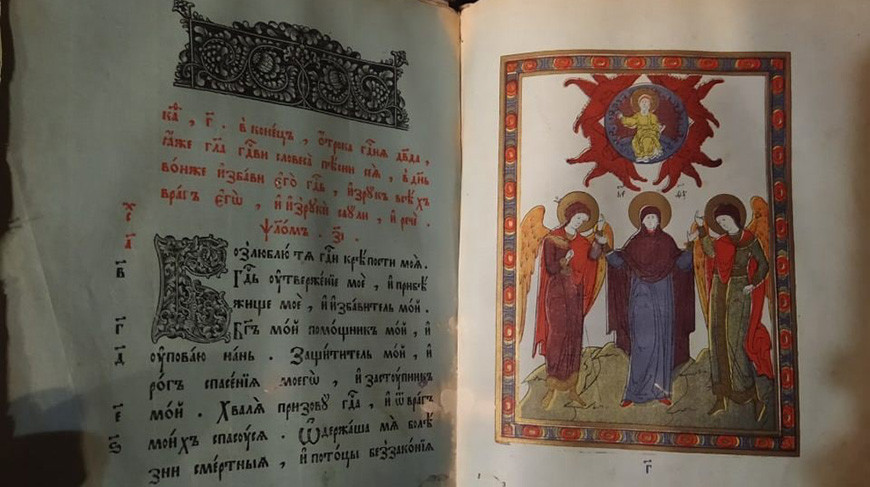 в҃ конецъ, ѻ҆трока гдⷭ҇нѧ дв҃да,
ꙗ҆́же гл҃а гдⷭ҇ви словеса̀ пѣ́сни сеѧ̀, в де́нь
во́нже и҆зба́ви є҆го̀ гдⷭ҇ь, ѿ рꙋ́къ всѣ́хъ
вра́гъ є҆гѡ̀, и҆ и҆зрꙋкѝ саꙋ́ли, и҆ речѐ.
Ѱало́мъ. з҃і.
Возлюблю́ тѧ гдⷭ҇и крѣ́пости моѧ̀.
Гдⷭ҇ь ᲂу҆твержде́ніе моѐ, и҆ прибѣ́
жище моѐ, и҆ и҆зба́витель мо́й.
Бг҃ъ мо́й помо́щникъ мо́й, и҆
ᲂу҆пова́ю на́нь. Защи́титель мо́й, и҆
ро́гъ спасе́нїѧ моегѡ̀, и҆ застꙋ́пникъ
мо́й. Хвалѧ̀ призовꙋ̀ гдⷭ҇а, и҆ ѿ вра́гъ
мои́хъ спасꙋ́сѧ. Ѡ҆держа́ша мѧ̀ болѣ́
зни сме́ртныѧ, и҆ пото́цы беззако́нїѧ
в҃
г҃
д҃
є҃
ѕ҃
г҃